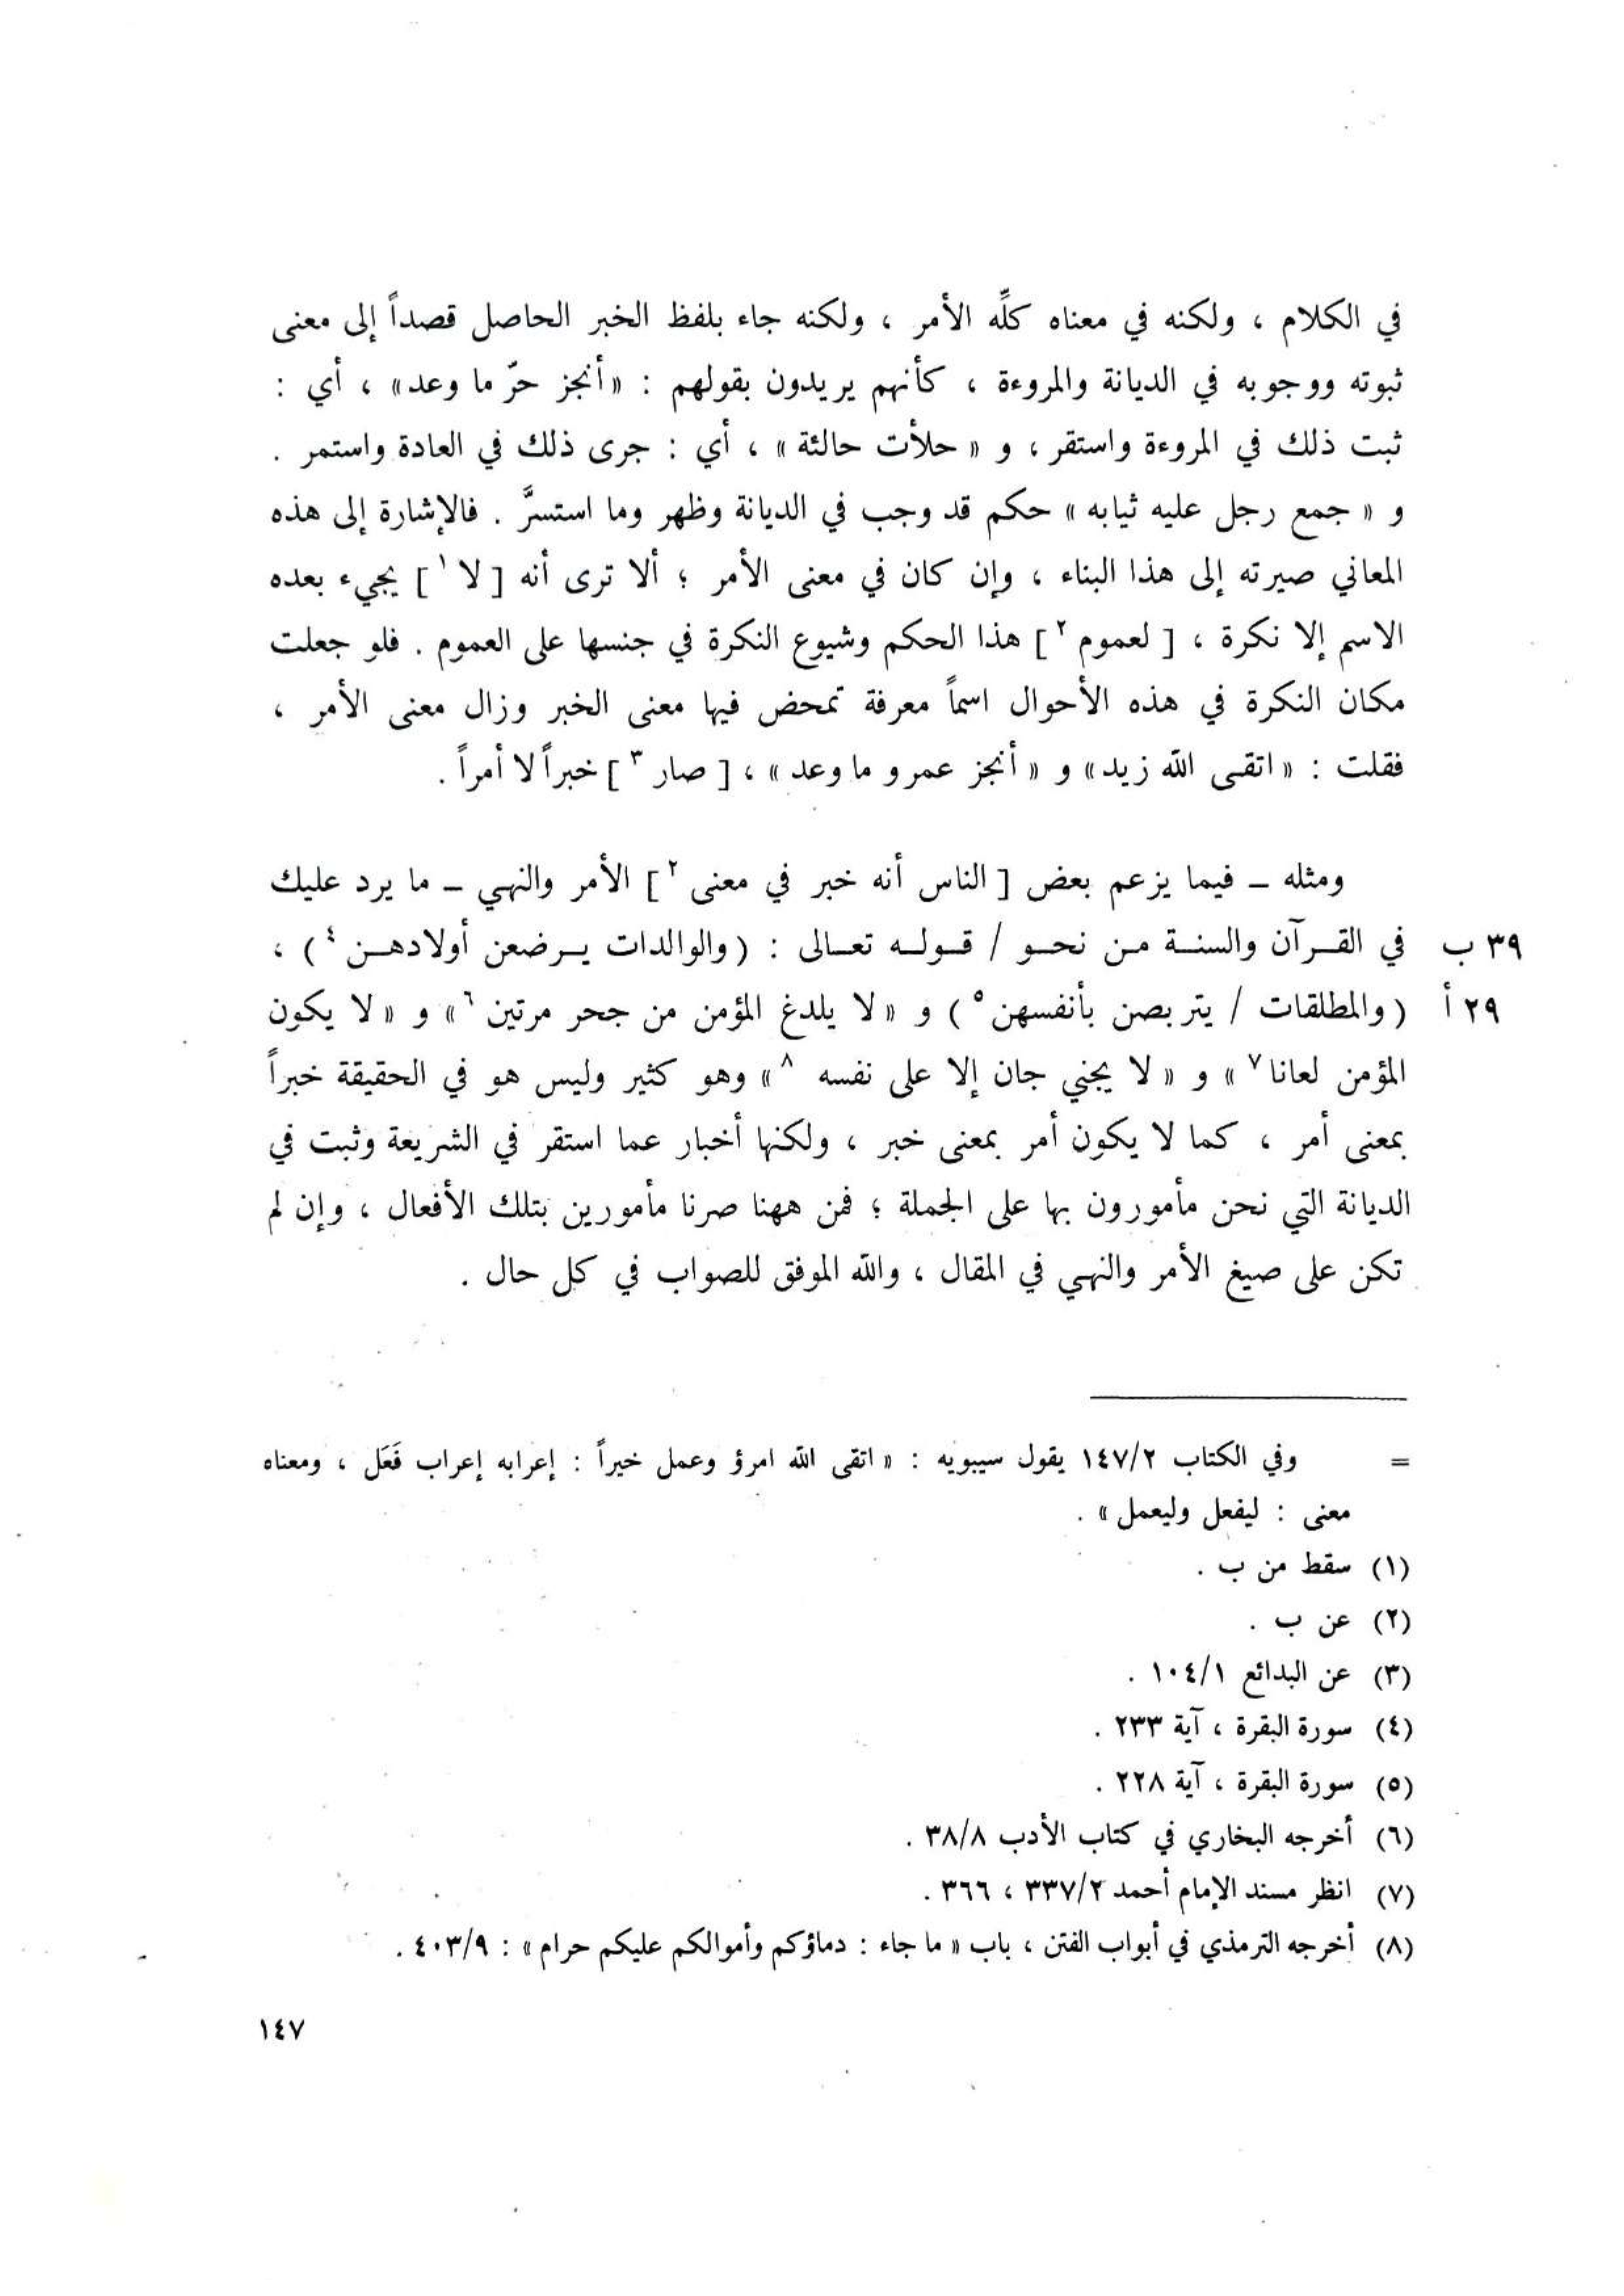 في الكلام ، ولكنه في معناه كلِّه الأمر ، ولكنه جاء بلفظ الخبر الحاصل قصداً إلى معنى
ثبوته ووجوبه في الديانة والمروءة ، كأنهم يريدون بقولهم : « أنجز حرّ ما وعد» ، أي :
ثبت ذلك في المروءة واستقر ، و « حلأت حالئة » ، أي : جرى ذلك في العادة واستمر .
و « جمع رجل عليه ثيابه » حكم قد وجب في الديانة وظهر وما استسرَّ . فالإشارة إلى هذه
المعاني صيرته إلى هذا البناء ، وإن كان في معنى الأمر ؛ ألا ترى أنه [ لا ١ ] يجيء بعده
الاسم إلا نكرة ، [ لعموم ٢ ] هذا الحكم وشيوع النكرة في جنسها على العموم . فلو جعلت
مكان النكرة في هذه الأحوال اسماً معرفة تمحض فيها معنى الخبر وزال معنى الأمر ،
فقلت : « اتقى الله زيد» و « أنجز عمرو ما وعد » ، [ صار ٣ ] خبراً لا أمراً .
ومثله – فيما يزعم بعض [ الناس أنه خبر في معنى ٢ ] الأمر والنهي – ما يرد عليك
٣٩ ب في القرآن والسنة من نحو / قوله تعالى : ( والوالدات يرضعن أولادهن ٤ ) ،
٢٩ أ ( والمطلقات / يتربصن بأنفسهن ٥ ) و « لا يلدغ المؤمن من جحر مرتين ٦ » و « لا يكون
المؤمن لعانا ٧ » و « لا يجني جان إلا على نفسه ٨ » وهو كثير وليس هو في الحقيقة خبراً
بمعنى أمر ، كما لا يكون أمر بمعنى خبر ، ولكنها أخبار عما استقر في الشريعة وثبت في
الديانة التي نحن مأمورون بها على الجملة ؛ فمن ههنا صرنا مأمورين بتلك الأفعال ، وإن لم
تكن على صيغ الأمر والنهي في المقال ، والله الموفق للصواب في كل حال .
= وفي الكتاب ١٤٧/٢ يقول سيبويه : « اتقى الله امرؤ وعمل خيراً : إعرابه إعراب فَعَل ، ومعناه
معنى : ليفعل وليعمل » .
(١) سقط من ب .
(٢) عن ب .
(٣) عن البدائع ١٠٤/١ .
(٤) سورة البقرة ، آية ٢٣٣ .
(٥) سورة البقرة ، آية ٢٢٨ .
(٦) أخرجه البخاري في كتاب الأدب ٣٨/٨ .
(٧) انظر مسند الإمام أحمد ٣٣٧/٢ ، ٣٦٦ .
(٨) أخرجه الترمذي في أبواب الفتن ، باب « ما جاء : دماؤكم وأموالكم عليكم حرام » : ٤٠٣/٩ .
١٤٧